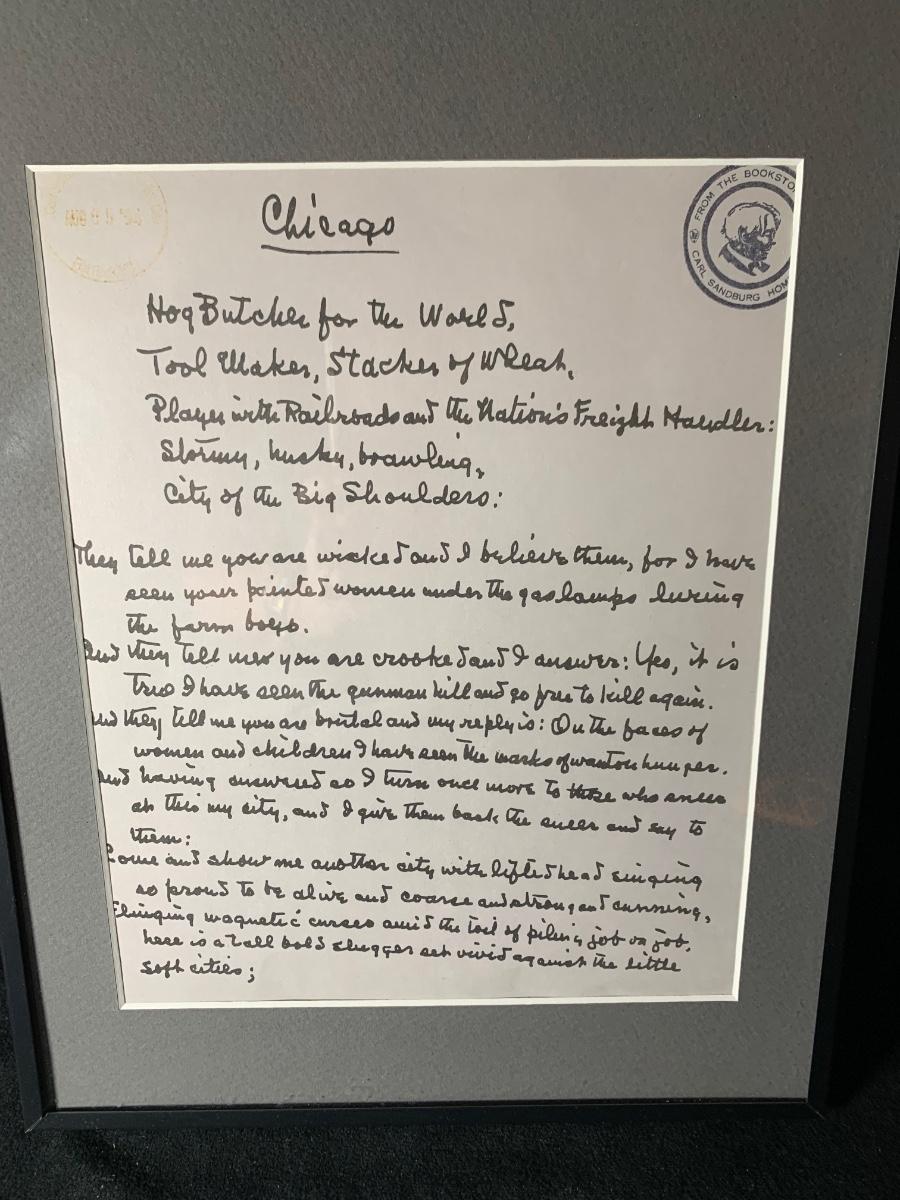 Chicago
FROM THE BOOKSTO
CARL SANDBURG HOM
Hog Butcher for the World,
Tool Maker, Stacker of Wheat,
Player with Railroads and the Nation's Freight Handler:
Stormy, husky, brawling,
City of the Big Shoulders:
They tell me you are wicked and I believe them, for I have
seen your painted women under the gas lamps luring
the farm boys.
And they tell me you are crooked and I answer: Yes, it is
true I have seen the gunman kill and go free to kill again.
And they tell me you are brutal and my reply is: On the faces of
women and children I have seen the marks of wanton hunger.
And having answered so I turn once more to those who sneer
at this my city, and I give them back the sneer and say to
them:
Come and show me another city with lifted head singing
so proud to be alive and coarse and strong and cunning,
Flinging magnetic curses amid the toil of piling job on job,
here is a tall bold slugger set vivid against the little
soft cities;